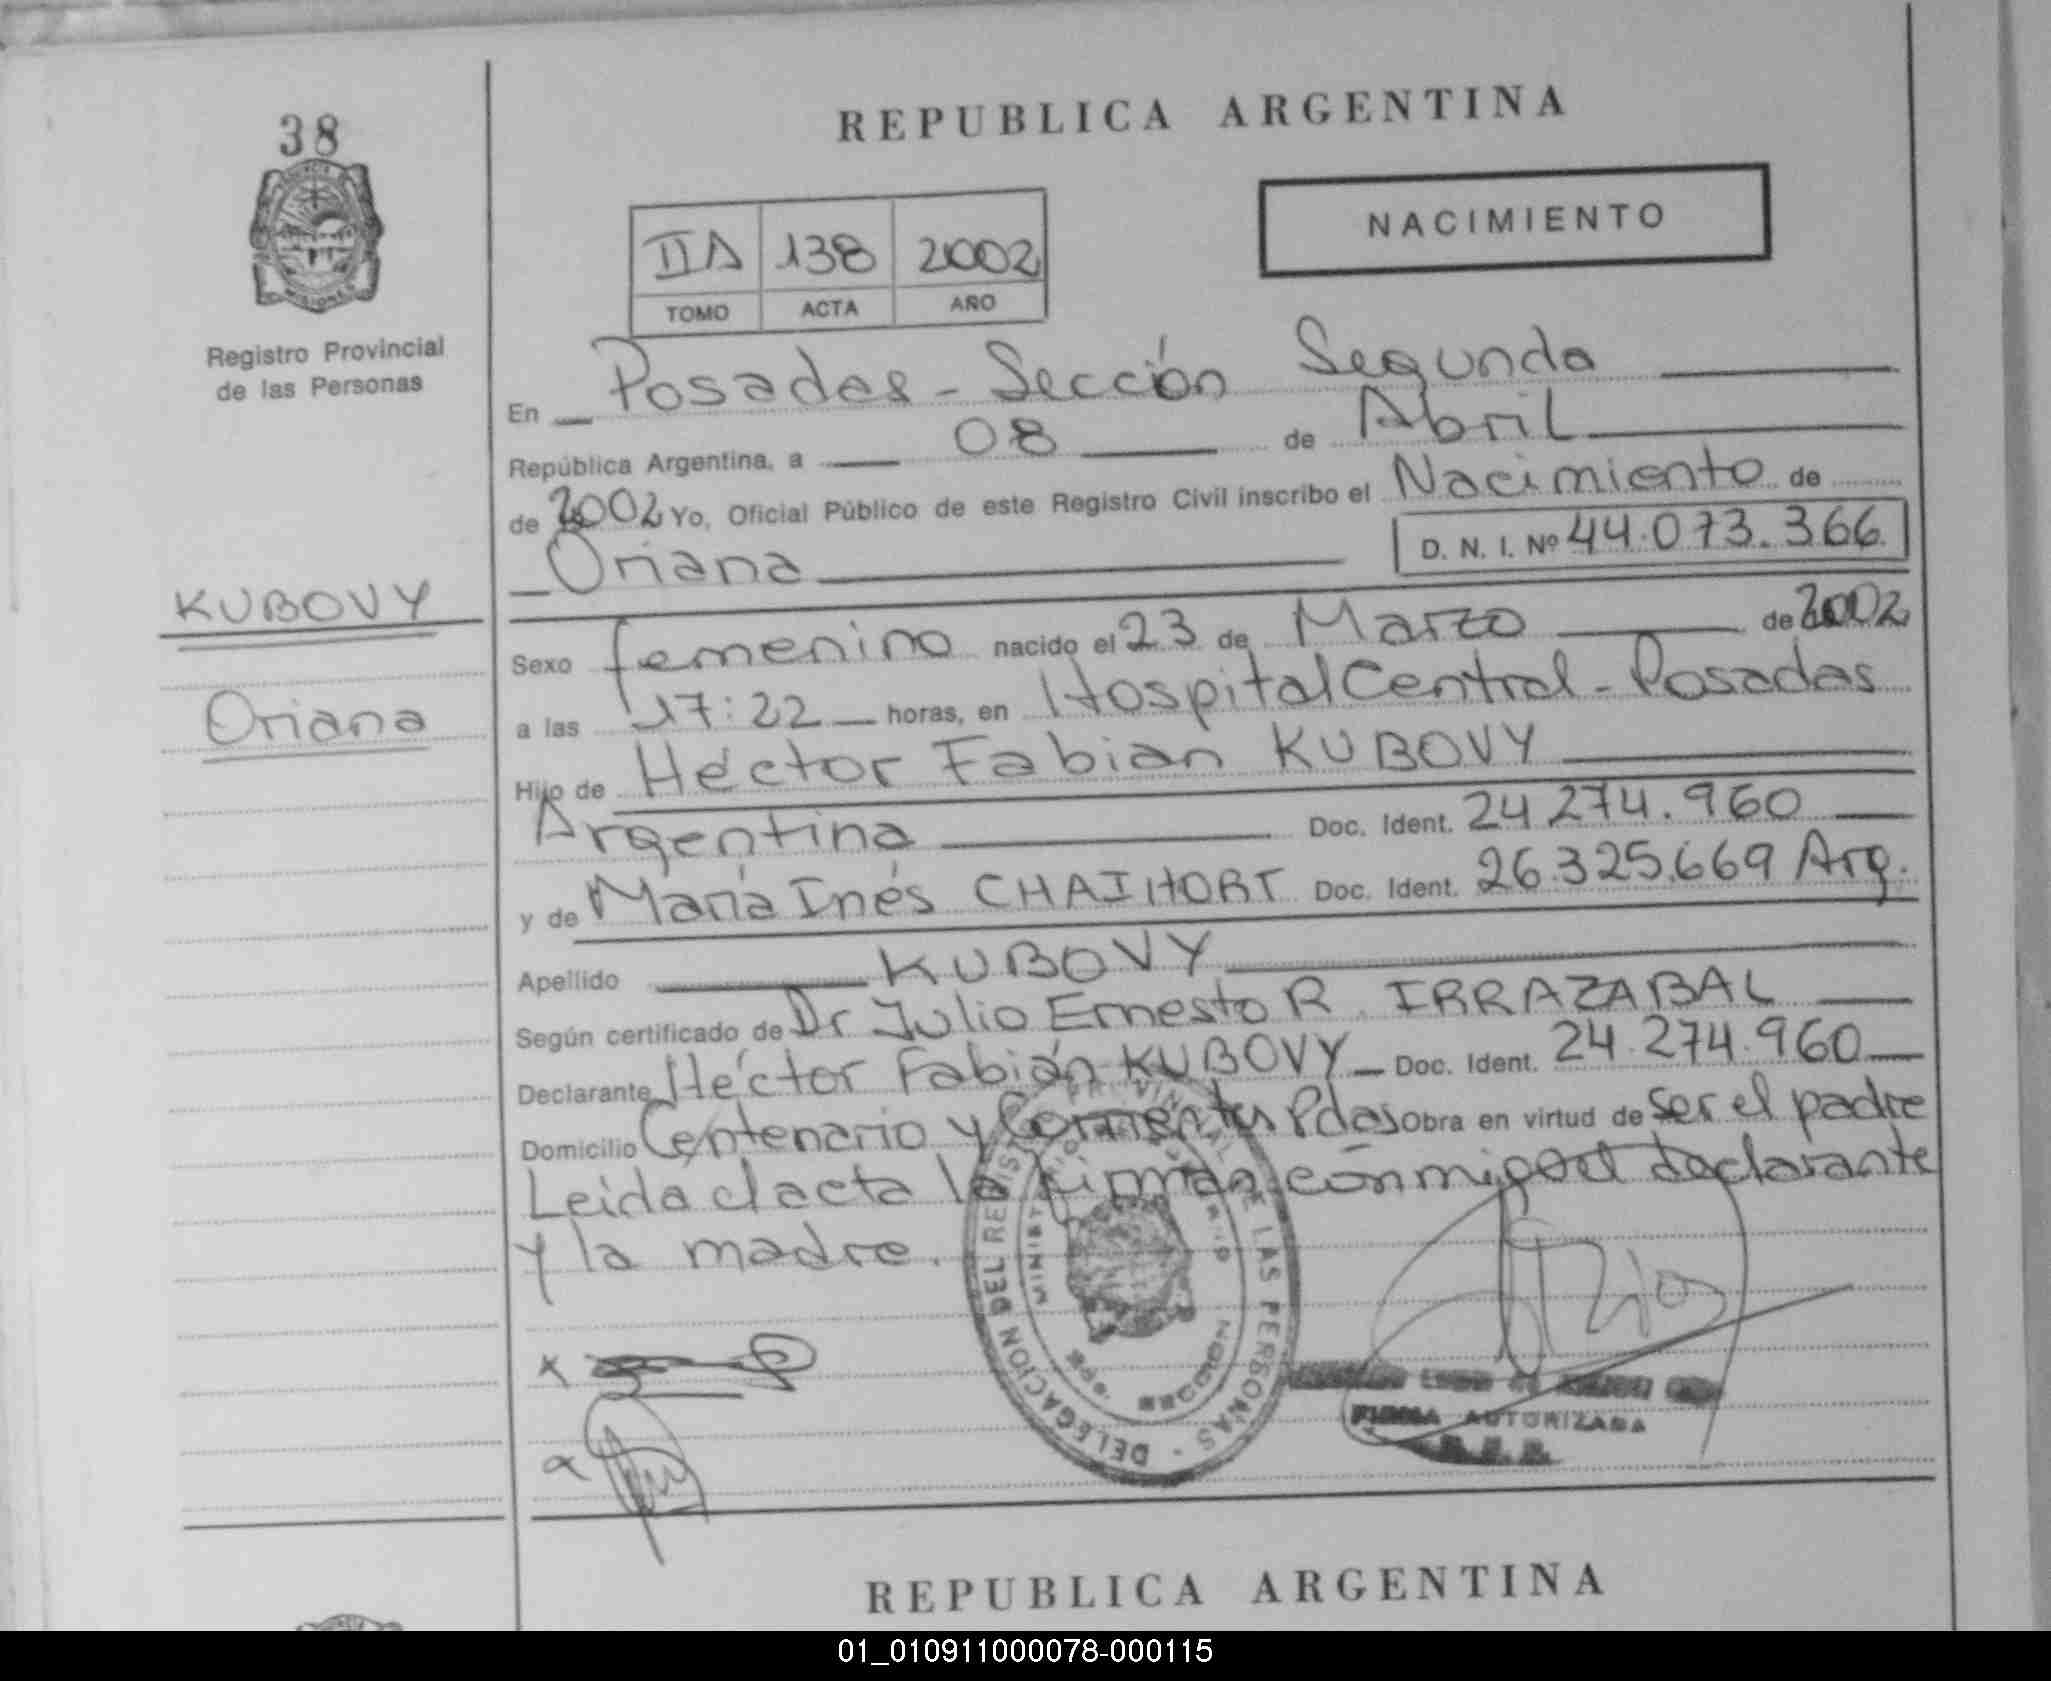 38
REPUBLICA ARGENTINA
NACIMIENTO
IIA 138 2002
TOMO ACTA AÑO
Registro Provincial
de las Personas
En Posadas - Sección Segunda
República Argentina, a 08 de Abril
de 2002 Yo, Oficial Público de este Registro Civil inscribo el Nacimiento de
Oriana D. N. I. Nº 44.073.366
KUBOVY
Oriana
Sexo femenino nacido el 23 de Marzo de 2002
a las 17:22 horas, en Hospital Central - Posadas
Hijo de Héctor Fabian KUBOVY
Argentina Doc. Ident. 24.274.960
y de María Inés CHAIHORT Doc. Ident. 26.325.669 Arg.
Apellido KUBOVY
Según certificado de Dr Julio Ernesto R. IRRAZABAL
Declarante Héctor Fabián KUBOVY Doc. Ident. 24.274.960
Domicilio Centenario y Corrientes Pdas Obra en virtud de ser el padre
Leida el acta la firman conmigo el declarante
y la madre.
DELEGACION DEL REGISTRO PROVINCIAL DE LAS PERSONAS
FIRMA AUTORIZADA
REPUBLICA ARGENTINA
01_010911000078-000115